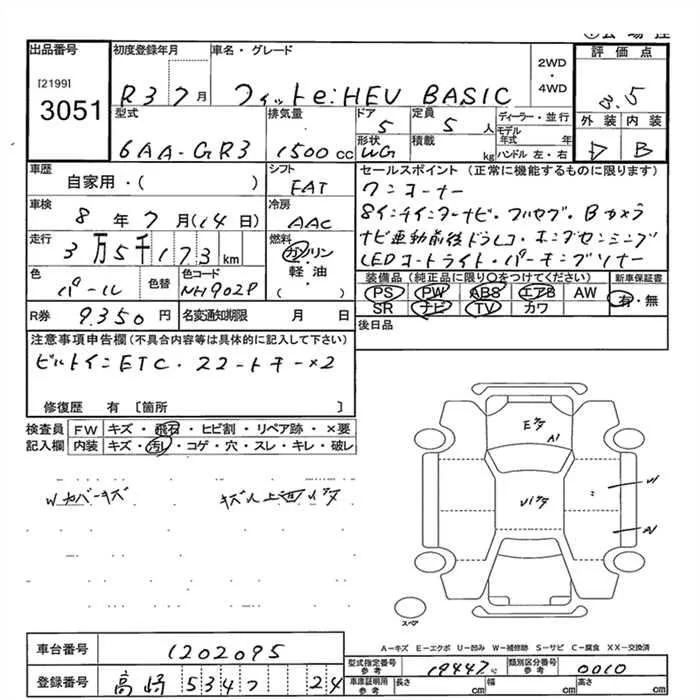 出品番号
[2199]
3051
初度登録年月
R3 7月
車名・グレード
フィット e:HEV BASIC
2WD
・
4WD
評価点
3.5
外装 内装
D B
型式
6AA-GR3
排気量
1500 cc
ドア
5
形状
WG
定員
5 人
積載
kg
ディーラー・並行
モデル
年式 年
ハンドル 左・右
車歴
自家用・( )
シフト
FAT
車検
8年 7月(14日)
冷房
AAC
走行
3万5千173 km
燃料
ガソリン
軽油
( )
色
パール
色替
色コード
NH902P
R券
9350 円
名変通知期限 月 日
セールスポイント (正常に機能するものに限ります)
ワンオーナー
8インチインターナビ・フルセグ・Bカメラ
ナビ連動前後ドラレコ・ホンダセンシング
LEDオートライト・パーキングソナー
装備品 (純正品に限り○をつけてください)
新車保証書
PS PW ABS エアB AW
SR ナビ TV カワ
有・無
後日品
注意事項申告欄 (不具合内容等は具体的に記入して下さい)
ビルトインETC・スマートキー×2
修復歴 有 [箇所 ]
検査員 FW キズ・飛石・ヒビ割・リペア跡・×要
記入欄 内装 キズ・汚レ・コゲ・穴・スレ・キレ・破レ
Wカバーキズ
A1
スペア
A-キズ E-エクボ U-凹み W-補修跡 S-サビ C-腐食 XX-交換済
車台番号
1202095
登録番号
高崎 534 7 24
型式指定番号
参考
19447
類別区分番号
参考
0010
車庫証明用
参考
長さ cm 幅 cm 高さ cm